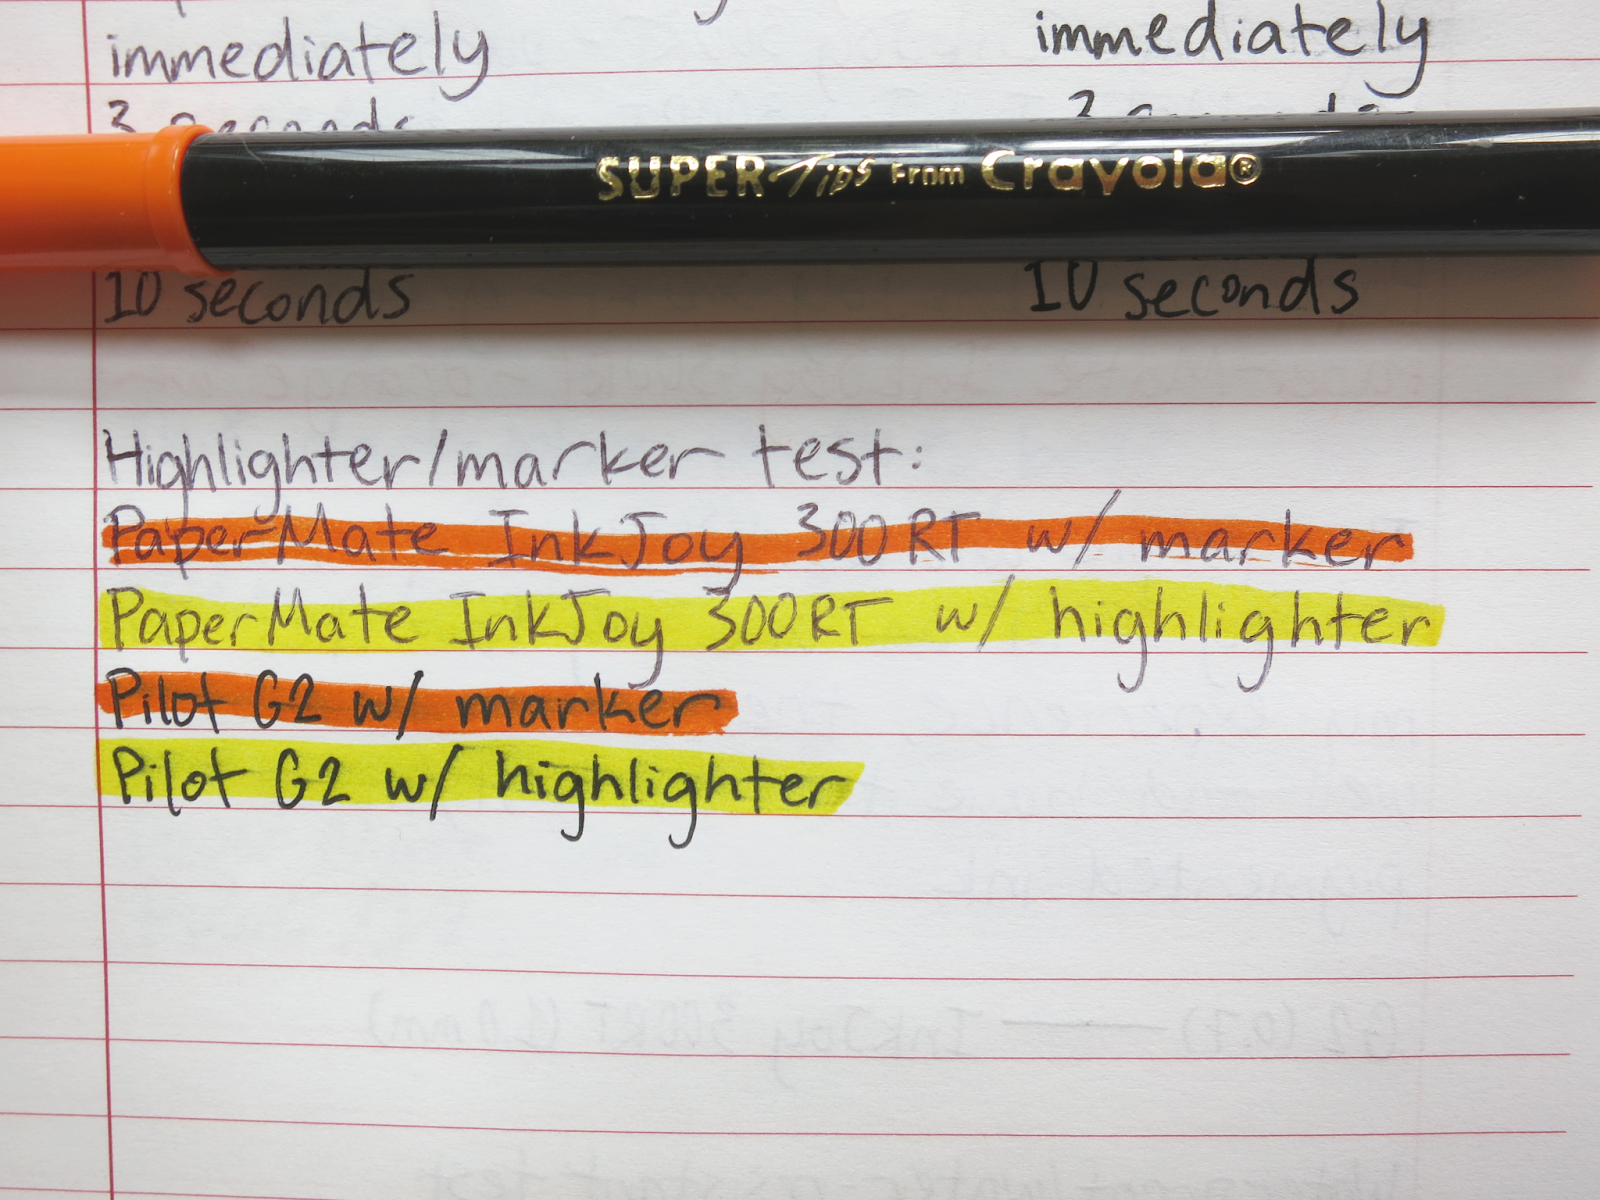 immediately immediately
3 seconds 3 seconds
SUPER Tips From Crayola®
10 seconds 10 seconds
Highlighter/marker test:
PaperMate InkJoy 300RT w/ marker
PaperMate InkJoy 300RT w/ highlighter
Pilot G2 w/ marker
Pilot G2 w/ highlighter
G2 (0.7) — InkJoy 300RT (1.0mm)